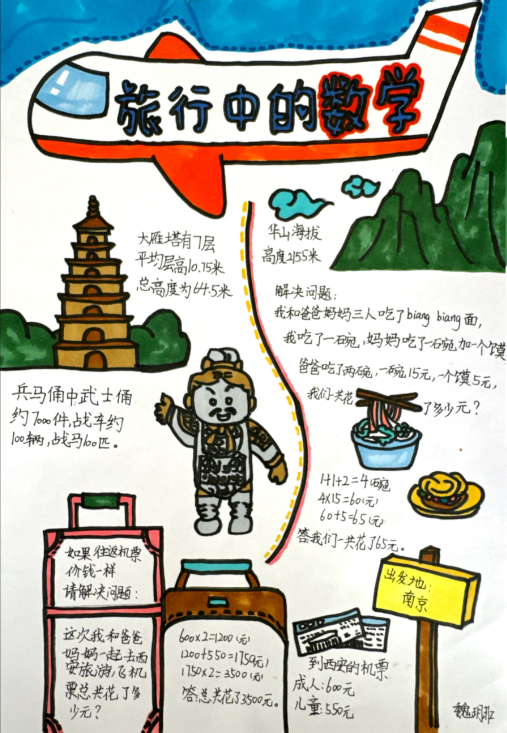 旅行中的数学
大雁塔有7层
平均层高10.75米
总高度为64.5米
华山海拔
高度2155米
解决问题:
我和爸爸妈妈三人吃了biang biang面,
我吃了一碗,妈妈吃了一碗加一个馍
爸爸吃了两碗,一碗15元,一个馍5元,
我们一共花了多少元?
1+1+2=4(碗)
4×15=60(元)
60+5=65(元)
答我们一共花了65元。
兵马俑中武士俑
约7000件,战车约
100辆,战马100匹。
如果往返机票
价钱一样
请解决问题:
这次我和爸爸
妈妈一起去西
安旅游,飞机
票总共花了多
少元?
600×2=1200(元)
1200+550=1750(元)
1750×2=3500(元)
答:总共花了3500元。
到西安的机票
成人:600元
儿童:550元
出发地:
南京
魏玥